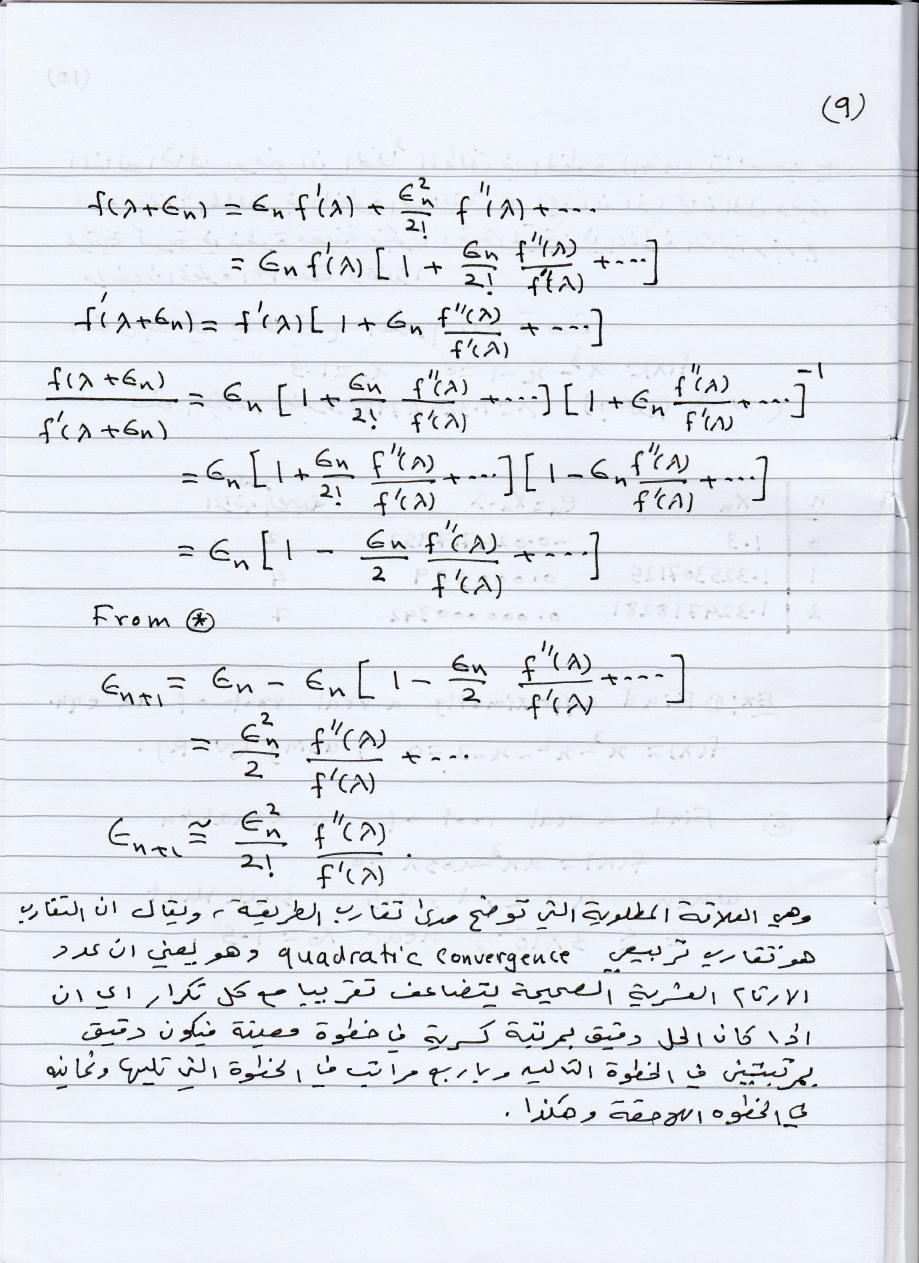 (9)
f(λ+ϵn) = ϵn f'(λ) + ϵn²/2! f''(λ) + ....
= ϵn f'(λ) [ 1 + ϵn/2! f''(λ)/f'(λ) + .... ]
f'(λ+ϵn) = f'(λ) [ 1 + ϵn f''(λ)/f'(λ) + .... ]
f(λ+ϵn)/f'(λ+ϵn) = ϵn [ 1 + ϵn/2! f''(λ)/f'(λ) + .... ] [ 1 + ϵn f''(λ)/f'(λ) + .... ]⁻¹
= ϵn [ 1 + ϵn/2! f''(λ)/f'(λ) + .... ] [ 1 - ϵn f''(λ)/f'(λ) + .... ]
= ϵn [ 1 - ϵn/2 f''(λ)/f'(λ) + .... ]
From ⊛
ϵn+1 = ϵn - ϵn [ 1 - ϵn/2 f''(λ)/f'(λ) + .... ]
= ϵn²/2 f''(λ)/f'(λ) + ....
ϵn+1 ≅ ϵn²/2! f''(λ)/f'(λ) .
وهي العلاقة المطلوبة التي توضح مدى تقارب الطريقة، ويقال ان التقارب
هو تقارب تربيعي quadratic convergence وهو يعني ان عدد
الارقام العشرية الصحيحة يتضاعف تقريبا مع كل تكرار اي ان
اذا كان الحل دقيق بمرتبة كسرية في خطوة معينة فيكون دقيق
بمرتبتين في الخطوة التاليه وباربع مراتب في الخطوة التي تليها وثمانيه
في الخطوه اللاحقة وهكذا .